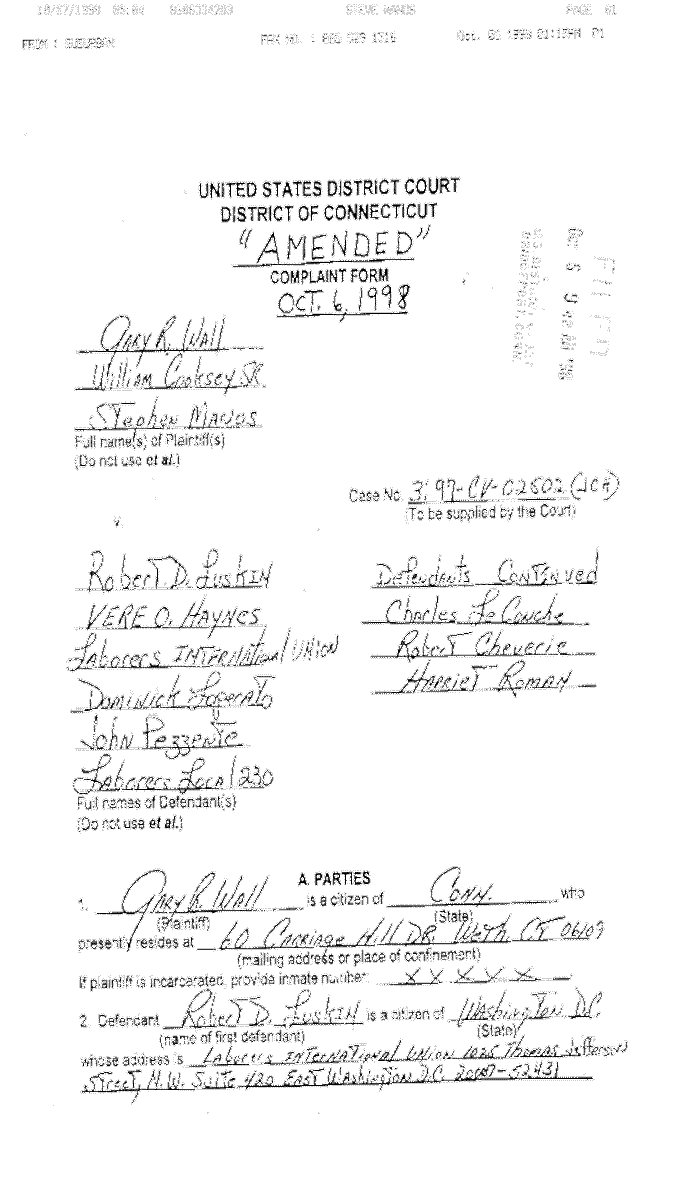 10/07/1999
STEVE MANOS
PAGE 01
FROM : SUBURBAN
FAX NO. : 860 529 1316
Oct. 01 1999 01:17AM P1
UNITED STATES DISTRICT COURT
DISTRICT OF CONNECTICUT
"AMENDED"
COMPLAINT FORM
OCT. 6, 1998
FILED
Gary R. Wall
William Cooksey SR.
Stephen Manos
Full name(s) of Plaintiff(s)
(Do not use et al.)
Case No. 3:97-CV-02502 (JCH)
(To be supplied by the Court)
v.
Robert D. Luskin
VERE O. HAYNES
Laborers INTERNATIONAL UNION
Dominick Loperato
John Pezzente
Laborers Local 230
Full names of Defendant(s)
(Do not use et al.)
Defendants Continued
Charles LeConche
Robert Cheverie
Harriet Roman
A. PARTIES
1. Gary R. Wall is a citizen of Conn. who
(Plaintiff) (State)
presently resides at 60 Carriage Hill DR. Weth. CT 06109
(mailing address or place of confinement)
If plaintiff is incarcerated, provide inmate number: X X X X X
2. Defendant Robert D. Luskin is a citizen of Washington D.C.
(name of first defendant) (State)
whose address is Laborers INTERNATIONAL UNION 1025 Thomas Jefferson
Street, N.W. Suite 420 EAST Washington D.C.